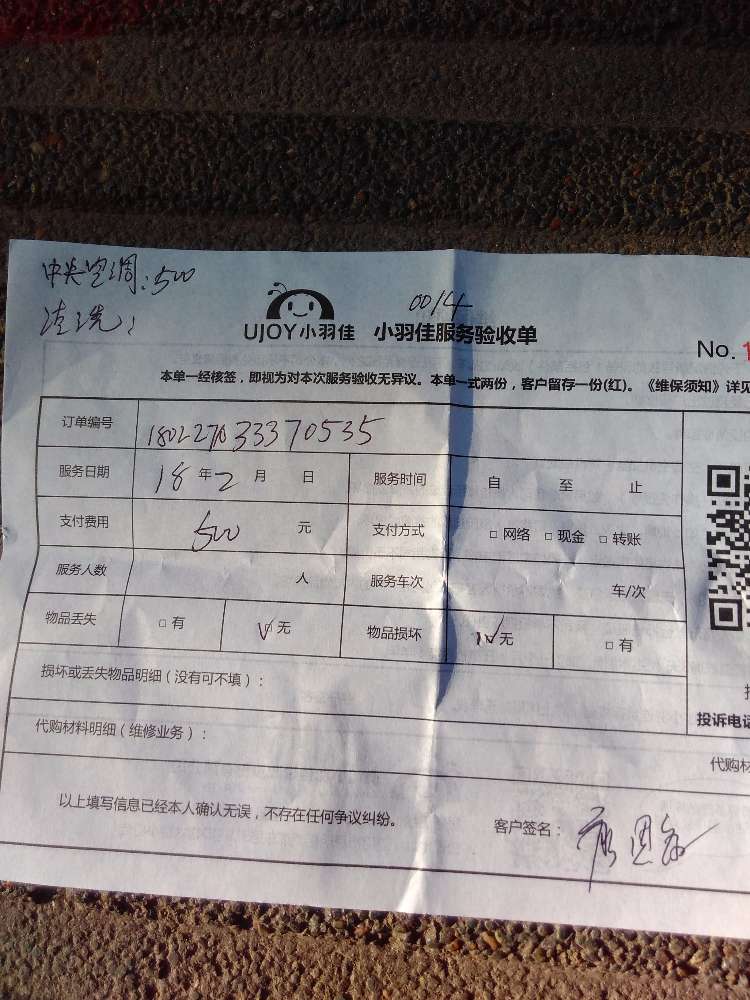 中央空调:500
清洗:
0014
UJOY小羽佳 小羽佳服务验收单
No. 1
本单一经核签,即视为对本次服务验收无异议。本单一式两份,客户留存一份(红)。《维保须知》详见
订单编号 180227033370535
服务日期 18年2月 日 服务时间 自 至 止
支付费用 500 元 支付方式 □网络 □现金 □转账
服务人数 人 服务车次 车/次
物品丢失 □有 √无 物品损坏 √无 □有
损坏或丢失物品明细(没有可不填):
投诉电话
代购材料明细(维修业务):
代购材
以上填写信息已经本人确认无误,不存在任何争议纠纷。 客户签名: